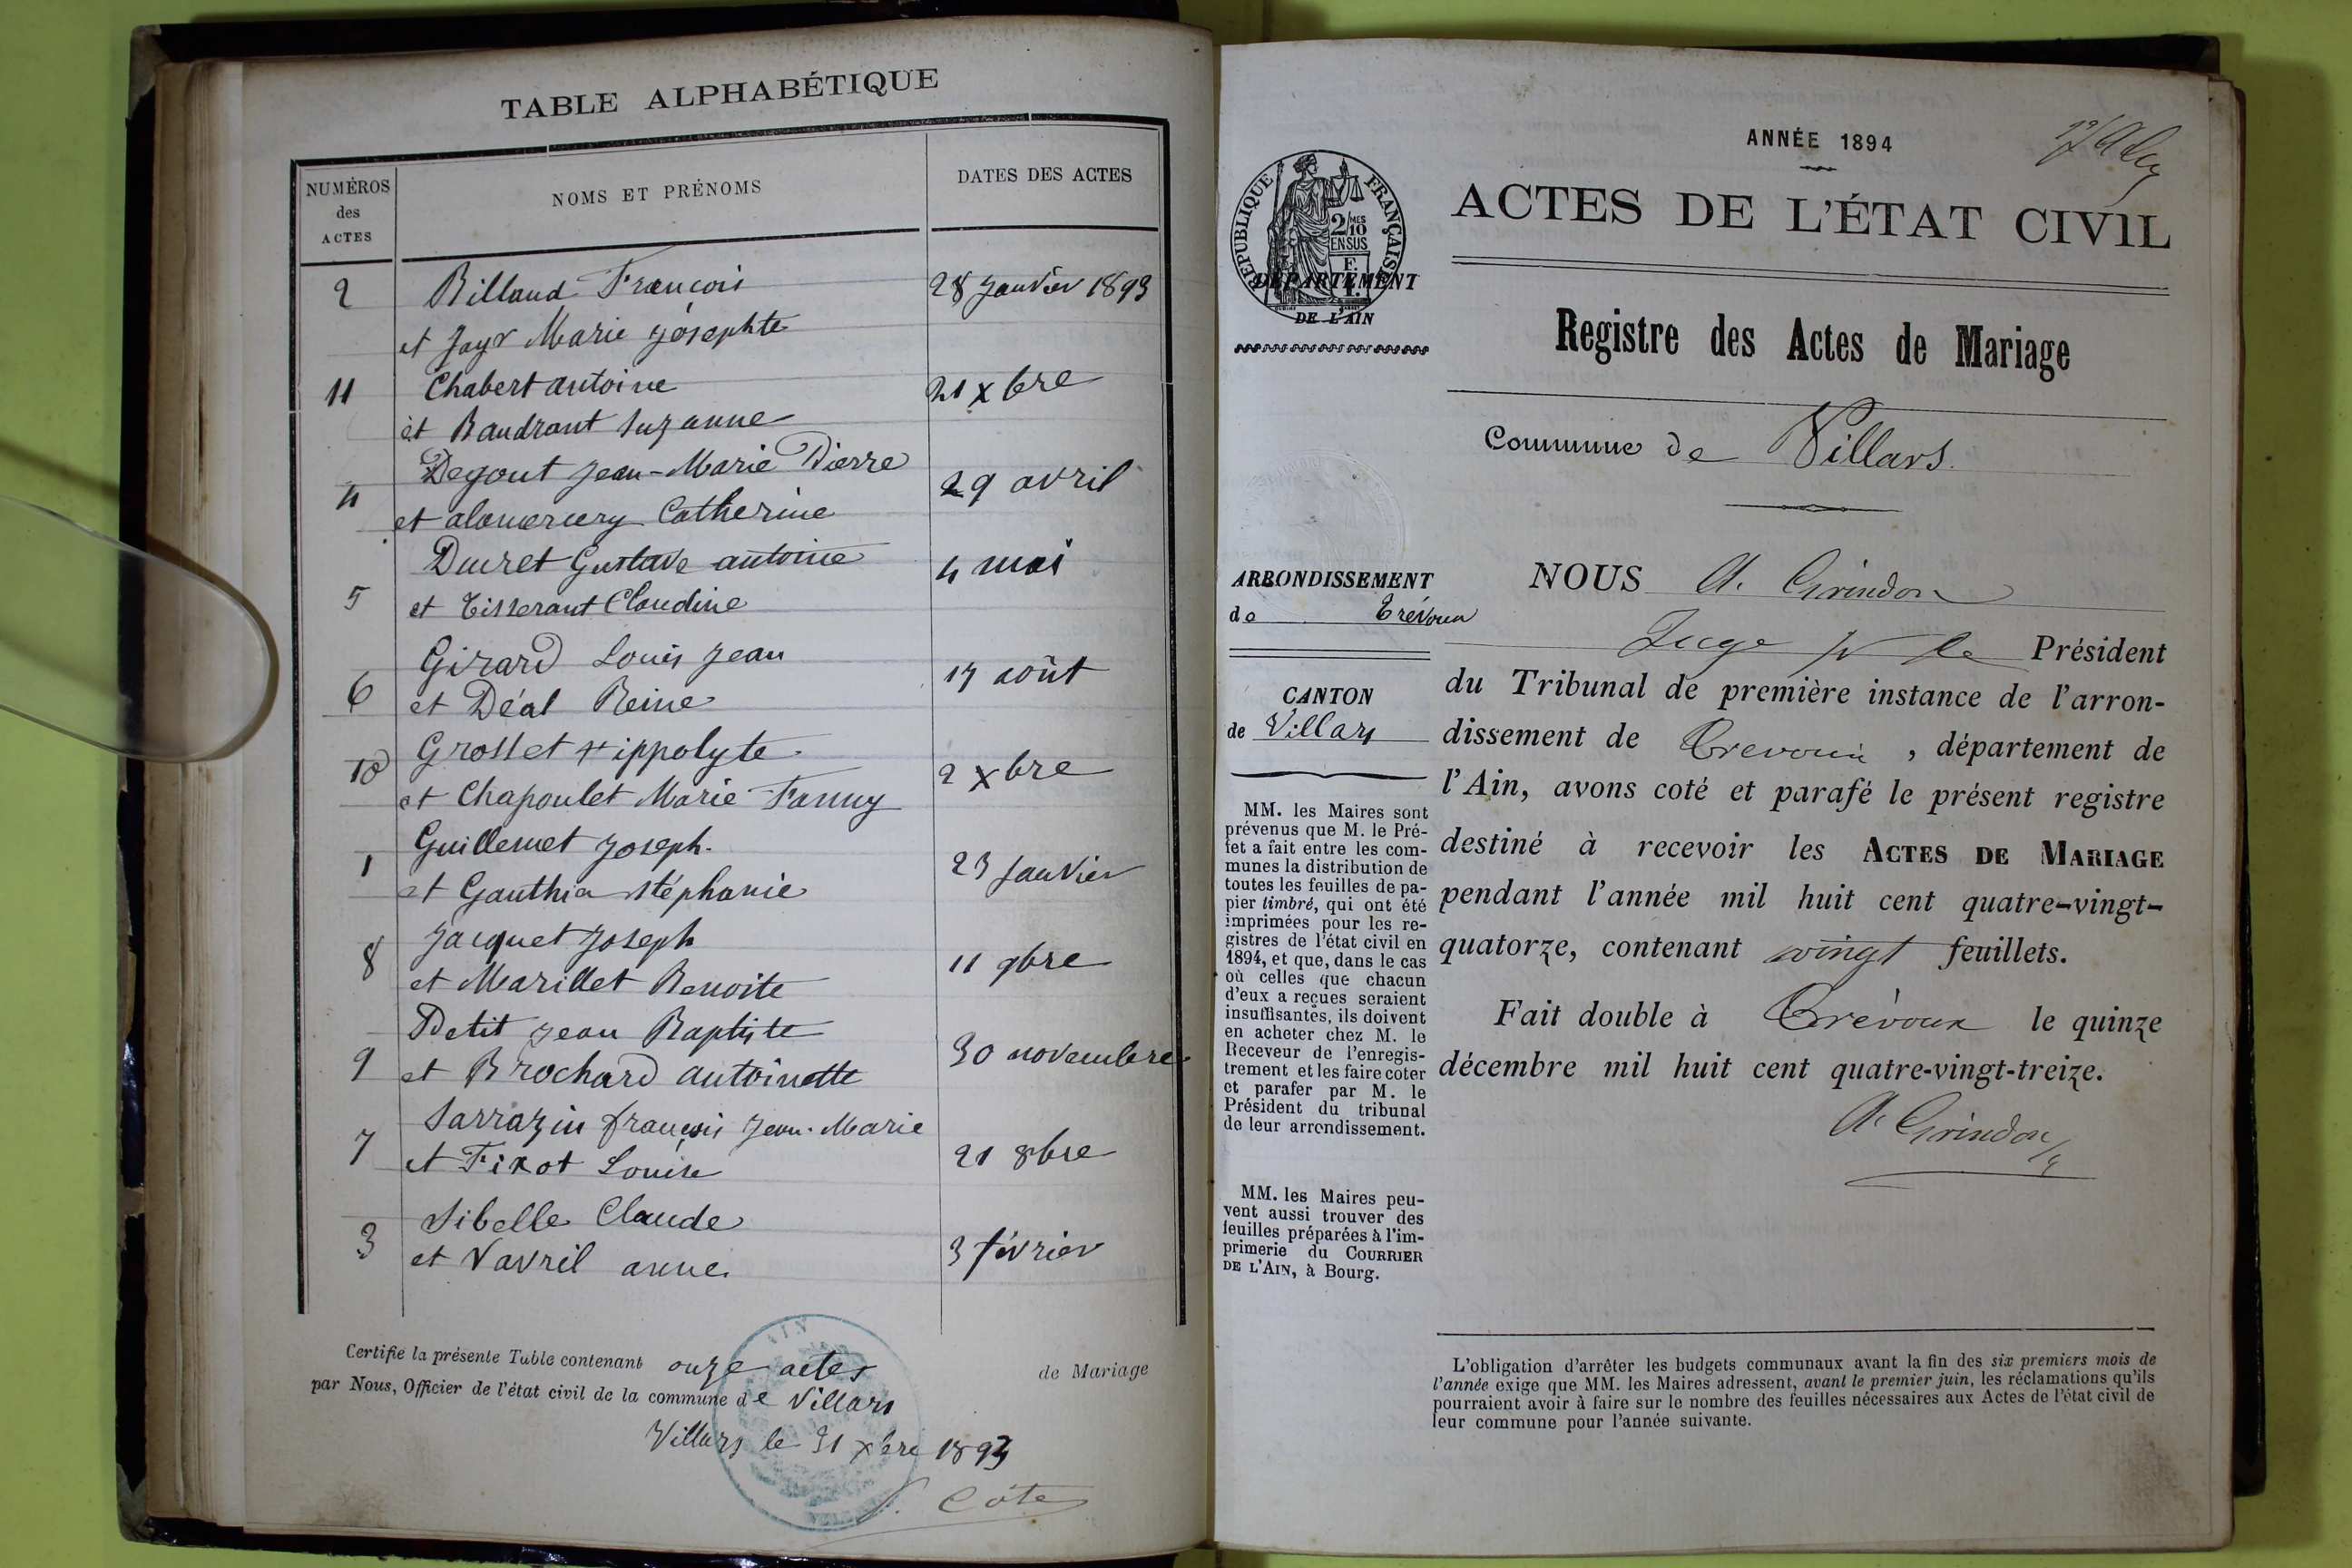 TABLE ALPHABÉTIQUE
NUMÉROS
des
ACTES
NOMS ET PRÉNOMS
DATES DES ACTES
2 Billaud François 28 Janvier 1893
et Jayr Marie Josephte
11 Chabert Antoine 21 xbre
et Baudrant Suzanne
4 Degout Jean-Marie Pierre 29 avril
et Catherine
Ducret Gustave Antoine 4 mai
5 et Tisserant Claudine
Girard Louis Jean 17 août
6 et Déal Reine
10 Grosset Hippolyte 2 xbre
et Chapoulet Marie Fanny
Guillemet Joseph.
1 et Gauthier Stéphanie 23 Janvier
Jacquet Joseph
8 et Marillet Benoite 11 9bre
Petit Jean Baptiste
9 et Brochard Antoinette 30 novembre
Sarrazin françois Jean-Marie
7 et Fixot Louise 21 8bre
Sibelle Claude
3 et Vavril anne. 3 février
Certifie la présente Table contenant onze actes de Mariage
par Nous, Officier de l'état civil de la commune de Villars
Villars le 31 xbre 1893
Cote
AIN
ANNÉE 1894
ACTES DE L'ÉTAT CIVIL
RÉPUBLIQUE FRANÇAISE
2/10
MES
EN SUS
DÉPARTEMENT
DE L'AIN
Registre des Actes de Mariage
Commune de Villars.
ARRONDISSEMENT
de Trévoux
CANTON
de Villars
MM. les Maires sont
prévenus que M. le Pré-
fet a fait entre les com-
munes la distribution de
toutes les feuilles de pa-
pier timbré, qui ont été
imprimées pour les re-
gistres de l'état civil en
1894, et que, dans le cas
où celles que chacun
d'eux a reçues seraient
insuffisantes, ils doivent
en acheter chez M. le
Receveur de l'enregis-
trement et les faire coter
et parafer par M. le
Président du tribunal
de leur arrondissement.
MM. les Maires peu-
vent aussi trouver des
feuilles préparées à l'im-
primerie du COURRIER
DE L'AIN, à Bourg.
NOUS A. Grindon
Juge pr le Président
du Tribunal de première instance de l'arron-
dissement de Trevoux , département de
l'Ain, avons coté et parafé le présent registre
destiné à recevoir les ACTES DE MARIAGE
pendant l'année mil huit cent quatre-vingt-
quatorze, contenant vingt feuillets.
Fait double à Trévoux le quinze
décembre mil huit cent quatre-vingt-treize.
A. Grindon
L'obligation d'arrêter les budgets communaux avant la fin des six premiers mois de
l'année exige que MM. les Maires adressent, avant le premier juin, les réclamations qu'ils
pourraient avoir à faire sur le nombre des feuilles nécessaires aux Actes de l'état civil de
leur commune pour l'année suivante.